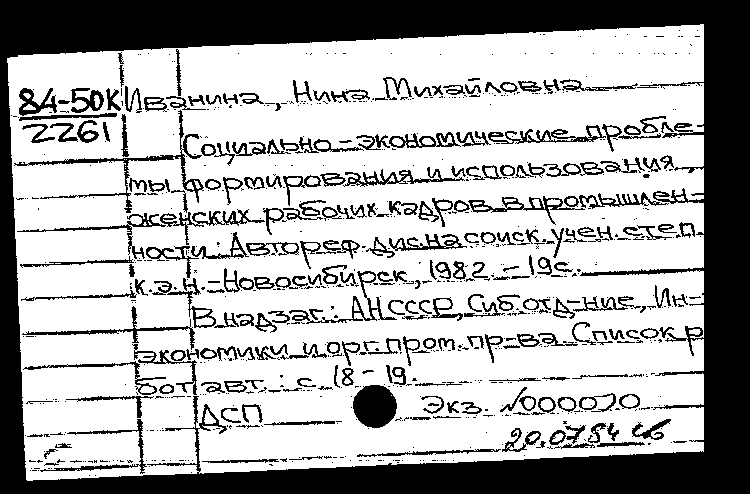 84-50К Иванина, Нина Михайловна
2261
Социально-экономические пробле-
мы формирования и использования
женских рабочих кадров в промышлен-
ности: Автореф.дис.на соиск.учен.степ.
к.э.н.-Новосибирск, 1982.-19с.
В надзаг.: АН СССР, Сиб.отд-ние, Ин-
экономики и орг.пром.пр-ва. Список р
бот авт.: с. 18-19.
ДСП Экз. №000070
20.07 84